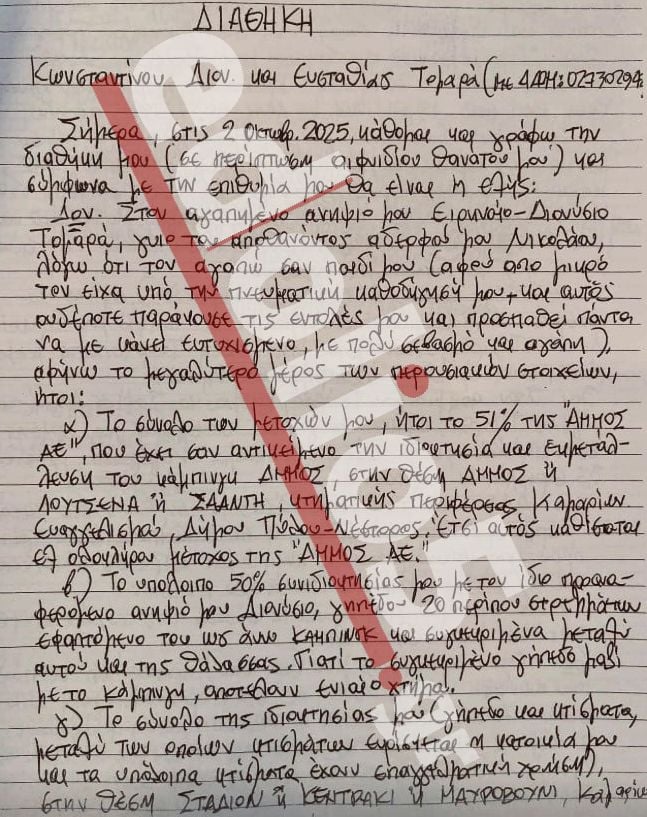 ΔΙΑΘΗΚΗ
Κωνσταντίνου Διον. και Ευσταθίας Τομαρά (με ΑΦΜ: 02730294
Σήμερα, στις 2 Οκτωβρ. 2025, κάθομαι και γράφω την
διαθήκη μου (σε περίπτωση αιφνιδίου θανάτου μου) και
σύμφωνα με την επιθυμία μου θα είναι η εξής:
Στον αγαπημένο ανηψιό μου Ειρηναίο-Διονύσιο
Τομαρά, γυιο του αποθανόντος αδερφού μου Νικολάου,
λόγω ότι τον αγαπώ σαν παιδί μου (αφού από μικρό
τον είχα υπό την πνευματική καθοδήγησή μου, και αυτός
ουδέποτε παράκουσε τις εντολές μου και προσπαθεί πάντα
να με κάνει ευτυχισμένο, με πολύ σεβασμό και αγάπη),
αφήνω το μεγαλύτερο μέρος των περουσιακών στοιχείων,
ήτοι:
α) Το σύνολο των μετοχών μου, ήτοι το 51% της "ΑΜΜΟΣ
ΑΕ", που έχει σαν αντικείμενο την ιδιοκτησία και εκμετάλ-
λευση του κάμπινγκ ΑΜΜΟΣ, στην θέση ΑΜΜΟΣ ή
ΛΟΥΤΣΕΝΑ ή ΣΑΑΝΤΗ, κτηματικής περιφέρειας Καμαρίων
Ευαγγελισμού, Δήμου Πύλου-Νέστορος. Έτσι αυτός καθίσταται
εξ ολοκλήρου μέτοχος της "ΑΜΜΟΣ ΑΕ."
β) Το υπόλοιπο 50% συνιδιοκτησίας μου με τον ίδιο προανα-
φερόμενο ανηψιό μου Διονύσιο, γηπέδου 20 περίπου στρεμμάτων
εφαπτόμενο του ως άνω ΚΑΜΠΙΝΓΚ και συγκεκριμένα μεταξύ
αυτού και της θάλασσας. Γιατί το συγκεκριμένο γήπεδο μαζί
με το κάμπινγκ, αποτελούν ενιαίο χτήμα.
γ) Το σύνολο της ιδιοκτησίας μου (γήπεδο και κτίσματα,
μεταξύ των οποίων κτισμάτων ευρίσκεται η κατοικία μου
και τα υπόλοιπα κτίσματα έχουν επαγγελματική χρήση),
στην θέση ΣΤΑΔΙΟΝ ή ΚΕΝΤΡΑΚΙ ή ΜΑΥΡΟΒΟΥΝΙ,